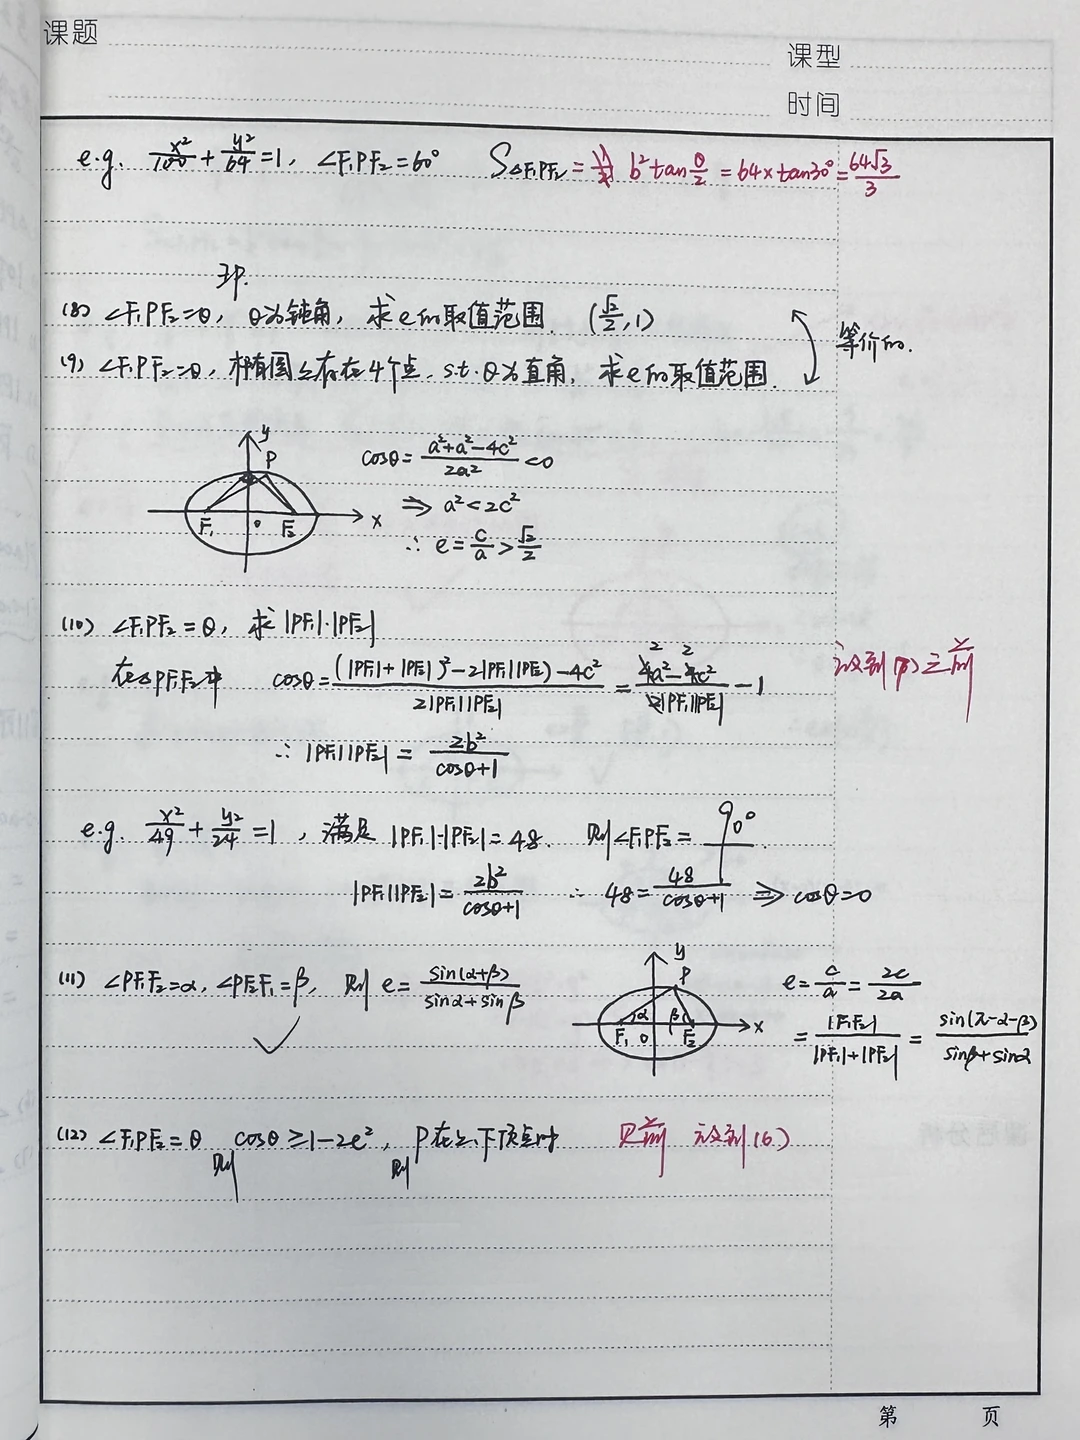 课题
课型
时间
e.g. x²/100 + y²/64 = 1, ∠F₁PF₂ = 60° S△F₁PF₂ = b² tan θ/2 = 64 × tan30° = 64√3/3
∃P.
(8) ∠F₁PF₂ = θ, θ为钝角, 求e的取值范围. (√2/2, 1)
等价的.
(9) ∠F₁PF₂ = θ, 椭圆上存在4个点, s.t. θ为直角, 求e的取值范围.
y
P
F₁ O F₂ x
cosθ = (a² + a² - 4c²)/2a² < 0
⇒ a² < 2c²
∴ e = c/a > √2/2
(10) ∠F₁PF₂ = θ, 求 |PF₁|·|PF₂|
在△PF₁F₂中 cosθ = ((|PF₁| + |PF₂|)² - 2|PF₁||PF₂| - 4c²)/2|PF₁||PF₂| = (2a² - 2c²)/|PF₁||PF₂| - 1
之前
∴ |PF₁||PF₂| = 2b²/(cosθ+1)
e.g. x²/49 + y²/24 = 1, 满足 |PF₁|·|PF₂| = 48. 则∠F₁PF₂ = 90°.
|PF₁||PF₂| = 2b²/(cosθ+1) ∴ 48 = 48/(cosθ+1) ⇒ cosθ = 0
(11) ∠PF₁F₂ = α, ∠PF₂F₁ = β, 则 e = sin(α+β)/(sinα + sinβ)
y
P
α β
F₁ O F₂ x
e = c/a = 2c/2a
= |F₁F₂|/(|PF₁| + |PF₂|) = sin(π-α-β)/(sinβ + sinα)
(12) ∠F₁PF₂ = θ 则 cosθ ≥ 1 - 2e², 则 P在上、下顶点时 (6)
第 页